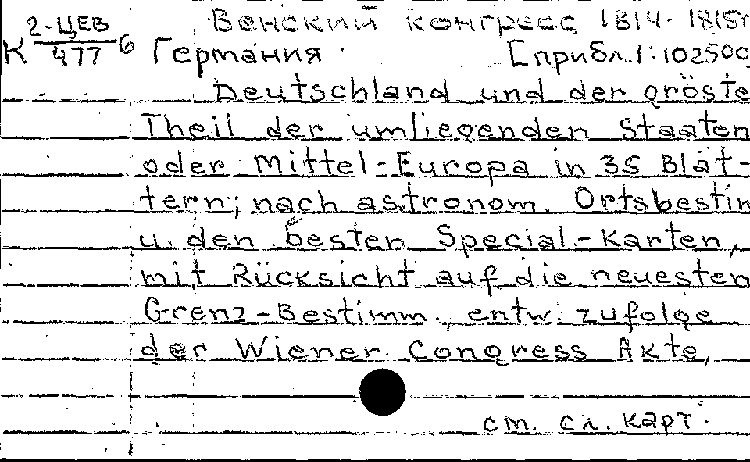 2-ЦЕВ Венский конгресс 1814-1815г
К 477 6 Германия. [прибл. 1:102500
Deutschland und der gröste
Theil der umliegenden Staaten
oder Mittel-Europa in 35 Blät-
tern; nach astronom. Ortsbestim
u. den besten Special-Karten,
mit Rücksicht auf die neuesten
Grenz-Bestimm. entw. zufolge
der Wiener Congress Akte,
см. сл. карт.